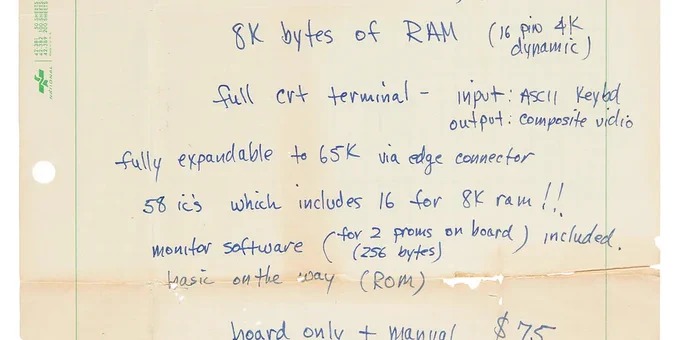 8K bytes of RAM (16 pin 4K dynamic)
full crt terminal - input: ASCII Keybd
output: composite vidio
fully expandable to 65K via edge connector
58 ic's which includes 16 for 8K ram!!
monitor software (for 2 proms on board) included.
(256 bytes)
basic on the way (ROM)
board only + manual $75
NATIONAL